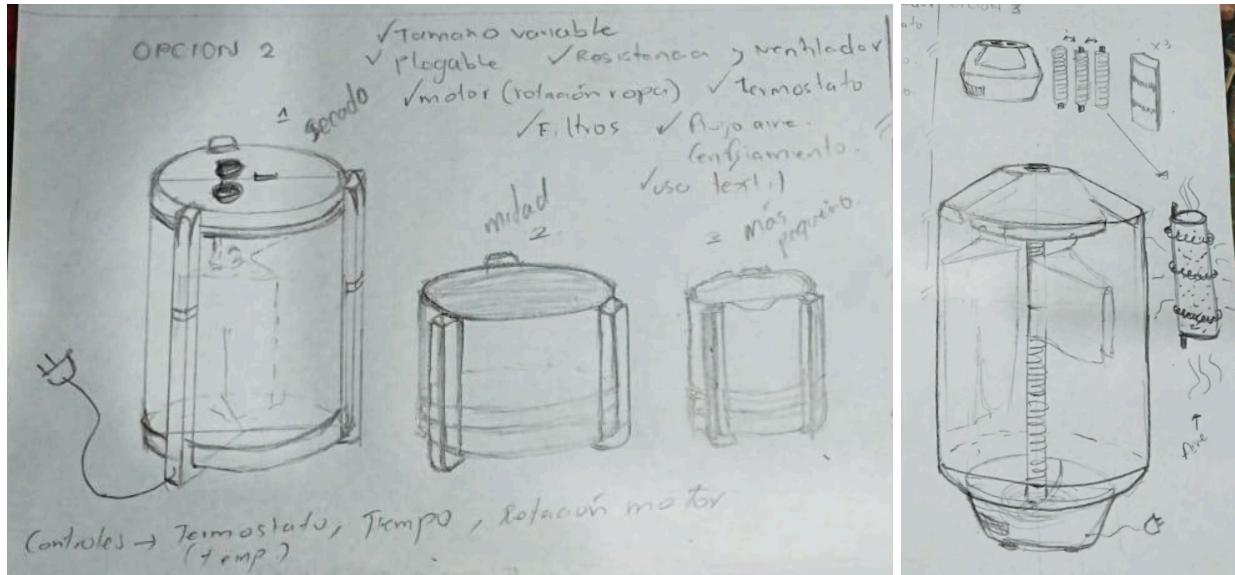 OPCION 2
✓Tamaño variable
✓ plegable ✓Resistencia y ventilador
✓motor (rotación ropa) ✓Termostato
✓Filtros ✓flujo aire.
✓uso textil
1
secado
mitad
2
3 más
pequeño.
Controles → Termostato, Tiempo, Rotación motor
(temp.)
CION 3
ato
x3
Aire